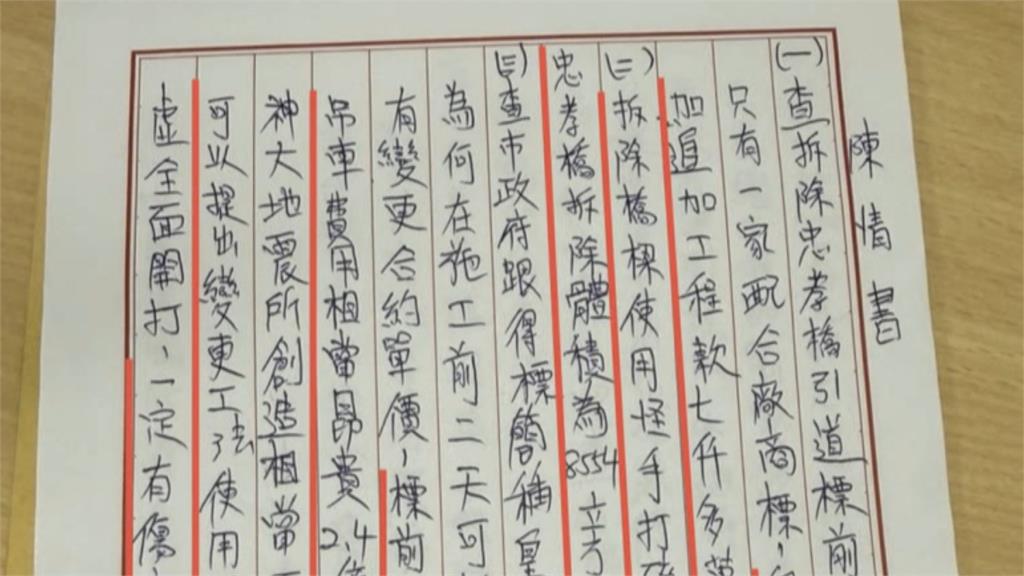 陳情書
(一)查拆除忠孝橋引道標前
只有一家配合廠商標,
加追加工程款七仟多萬
(二)拆除橋樑使用怪手打
忠孝橋拆除體積為8554立方
(三)查市政府跟得標簡稱皇
為何在施工前二天可
有變更合約單價,標前
吊車費用相當昂貴2.4
神大地震所創造相當
可以提出變更工法使用
虛全面開打,一定有傷